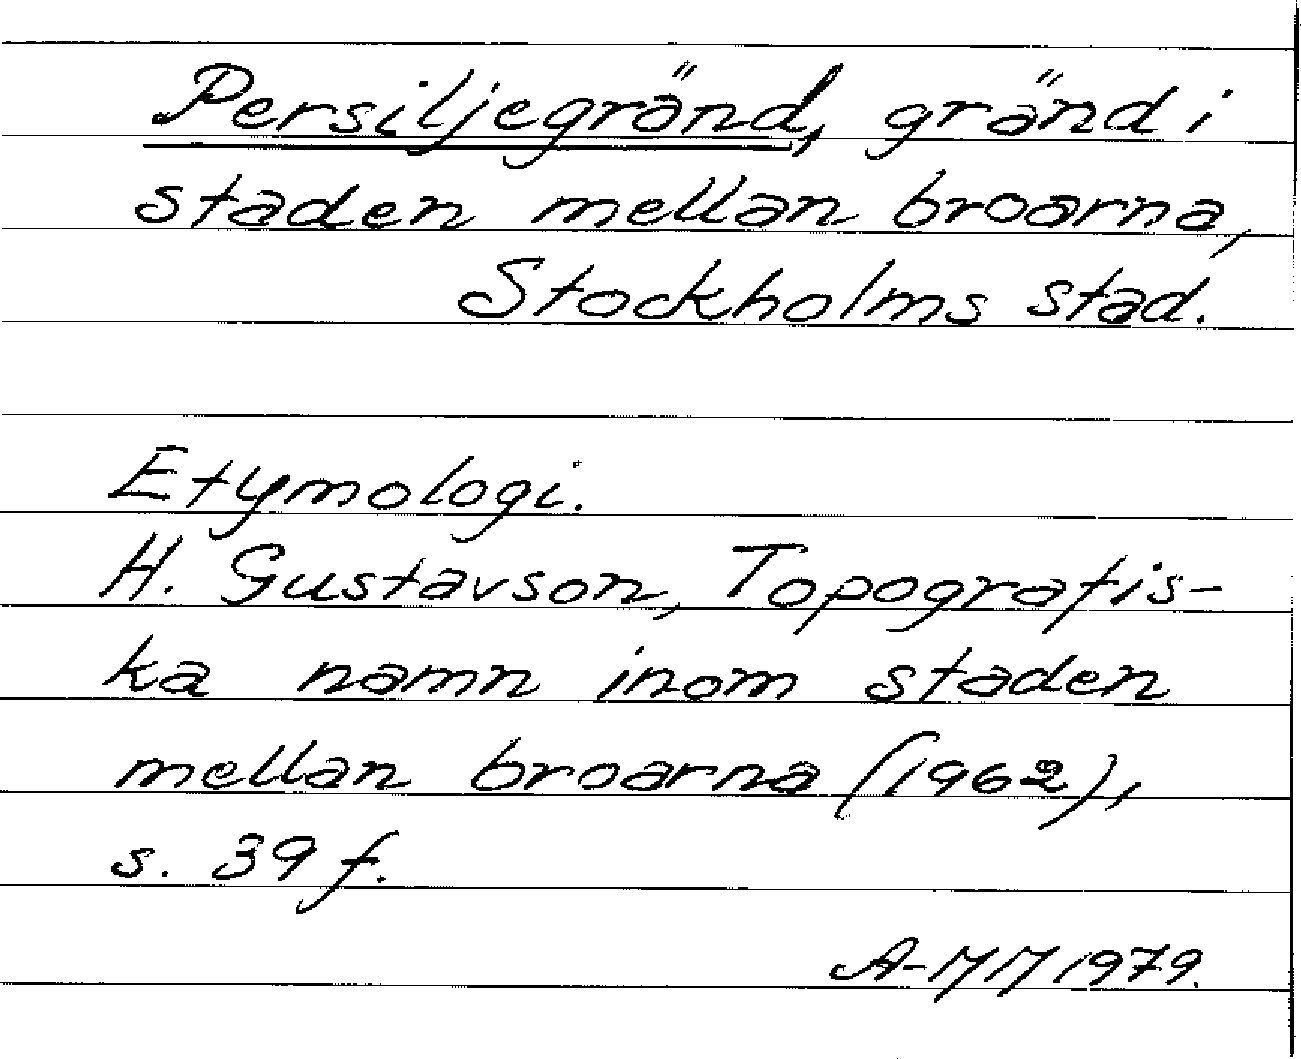 Persiljegränd, gränd i
staden mellan broarna,
Stockholms stad.
Etymologi.
H. Gustavson, Topografis-
ka namn inom staden
mellan broarna (1962),
s. 39 f.
A-MM 1979.